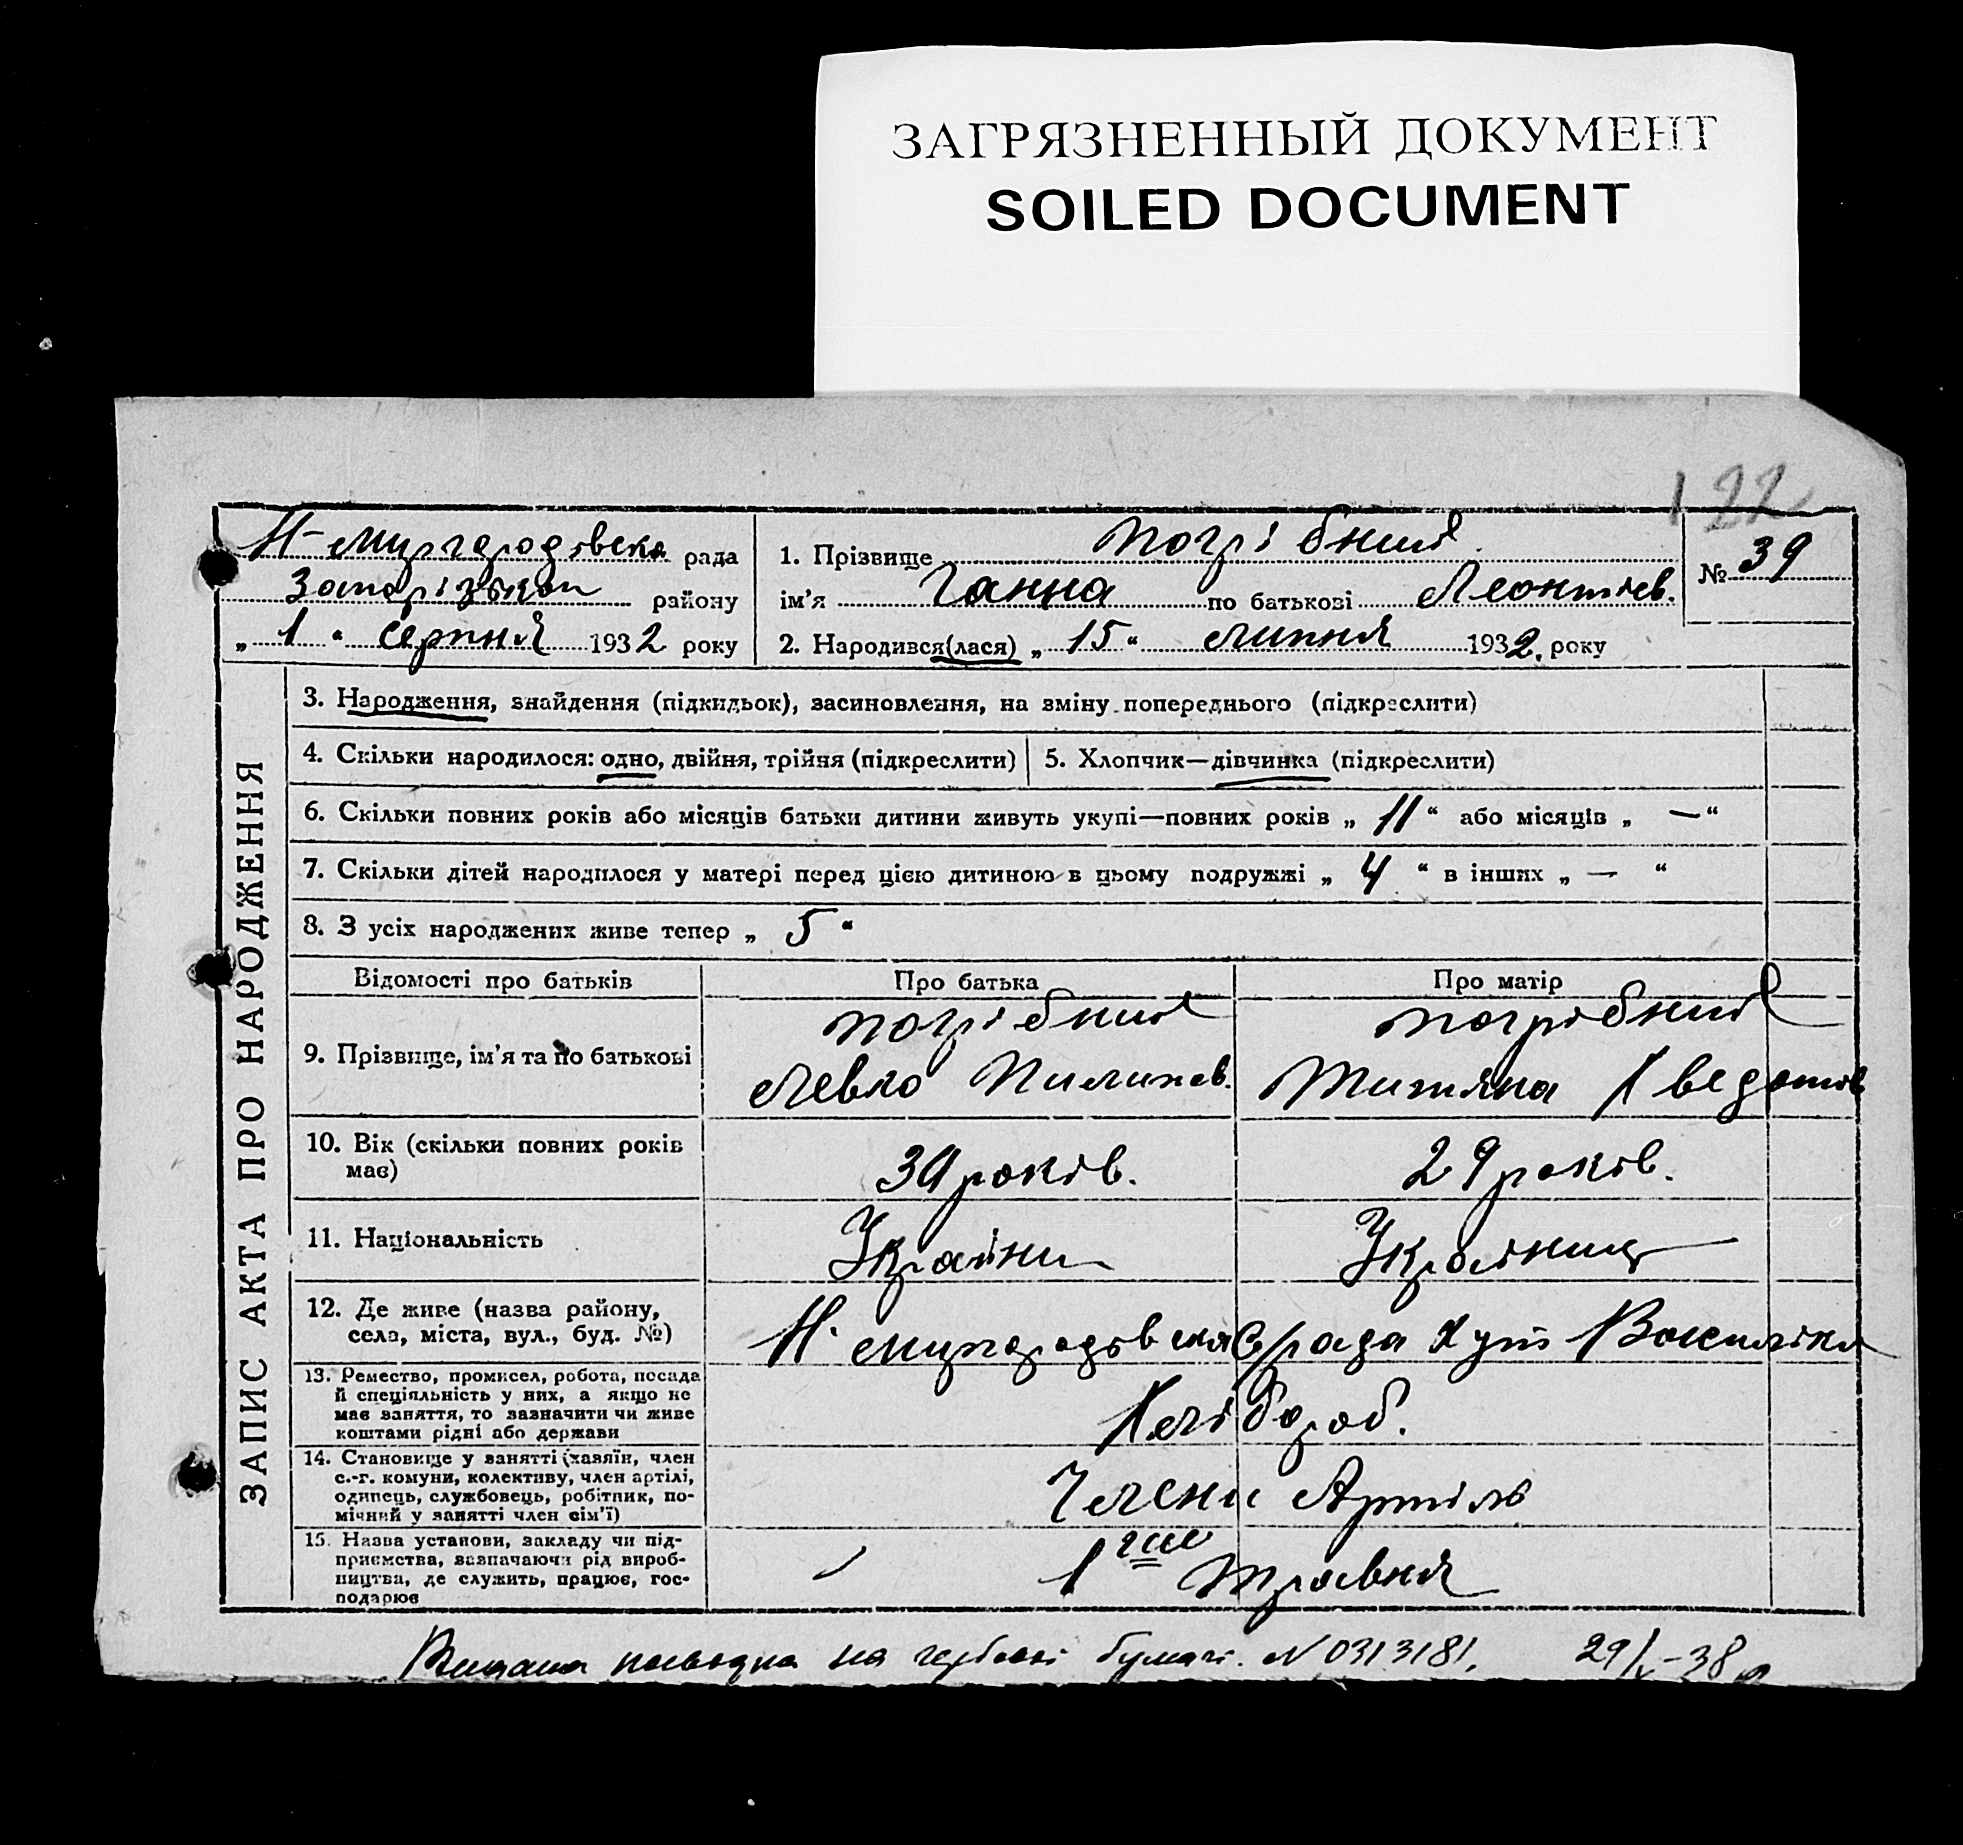 ЗАГРЯЗНЕННЫЙ ДОКУМЕНТ
SOILED DOCUMENT
122
рада
району
„ 1 “ Серпня 1932 року
1. Прізвище Погрібний
ім'я Ганна по батькові Леонтіев.
2. Народився(лася) „ 15 “ Липня 1932. року
№ 39
ЗАПИС АКТА ПРО НАРОДЖЕННЯ
3. Народження, знайдення (підкидьок), засиновлення, на зміну попереднього (підкреслити)
4. Скільки народилося: одно, двійня, трійня (підкреслити)
5. Хлопчик—дівчинка (підкреслити)
6. Скільки повних років або місяців батьки дитини живуть укупі—повних років „ 11 “ або місяців „ — “
7. Скільки дітей народилося у матері перед цією дитиною в цьому подружжі „ 4 “ в інших „ — “
8. З усіх народжених живе тепер „ 5 “
Відомості про батьків
Про батька
Про матір
9. Прізвище, ім'я та по батькові
Погрібний
Левко
Погрібний
10. Вік (скільки повних років
має)
років.
29 років.
11. Національність
12. Де живе (назва району,
села, міста, вул., буд. №)
рада Хут
13. Ремество, промисел, робота, посада
й спеціяльність у них, а якщо не
має заняття, то зазначити чи живе
коштами рідні або держави
Хлібороб.
14. Становище у занятті (хазяїн, член
с.-г. комуни, колективу, член артілі,
одинець, службовець, робітник, по-
мічний у занятті член сім'ї)
Члени Артіль
15. Назва установи, закладу чи під-
приємства, зазначаючи рід вироб-
ництва, де служить, працює, гос-
подарює
1го Травня
на гербові бумагі. N 0313181.